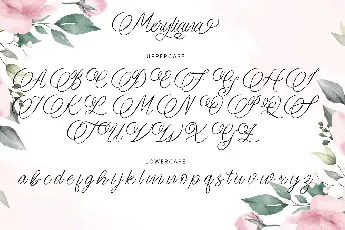 Meryliana
UPPERCASE
A B C D E F G H I
J K L M N O P Q R S
T U V W X Y Z
LOWERCASE
a b c d e f g h i j k l m n o p q r s t u v w x y z